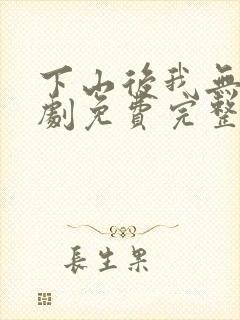 下山後我無
劇免費完整
長生果